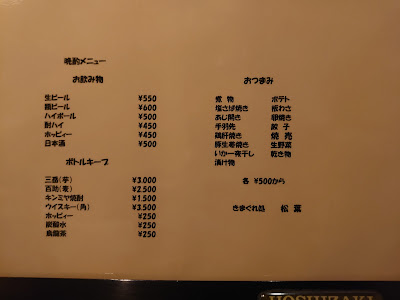 晩酌メニュー
お飲み物
生ビール ¥550
瓶ビール ¥600
ハイボール ¥500
酎ハイ ¥450
ホッピィー ¥450
日本酒 ¥500
ボトルキープ
三岳(芋) ¥3,000
百助(麦) ¥2,500
キンミヤ焼酎 ¥1,500
ウイスキー(角) ¥3,500
ホッピィー ¥250
炭酸水 ¥250
烏龍茶 ¥250
おつまみ
煮物 ポテト
塩さば焼き 板わさ
あじ開き 卵焼き
手羽先 餃子
鶏肝焼き 焼売
豚生姜焼き 生野菜
いか一夜干し 乾き物
漬け物
各 ¥500から
きまぐれ処 松葉
HOSHIZAKI